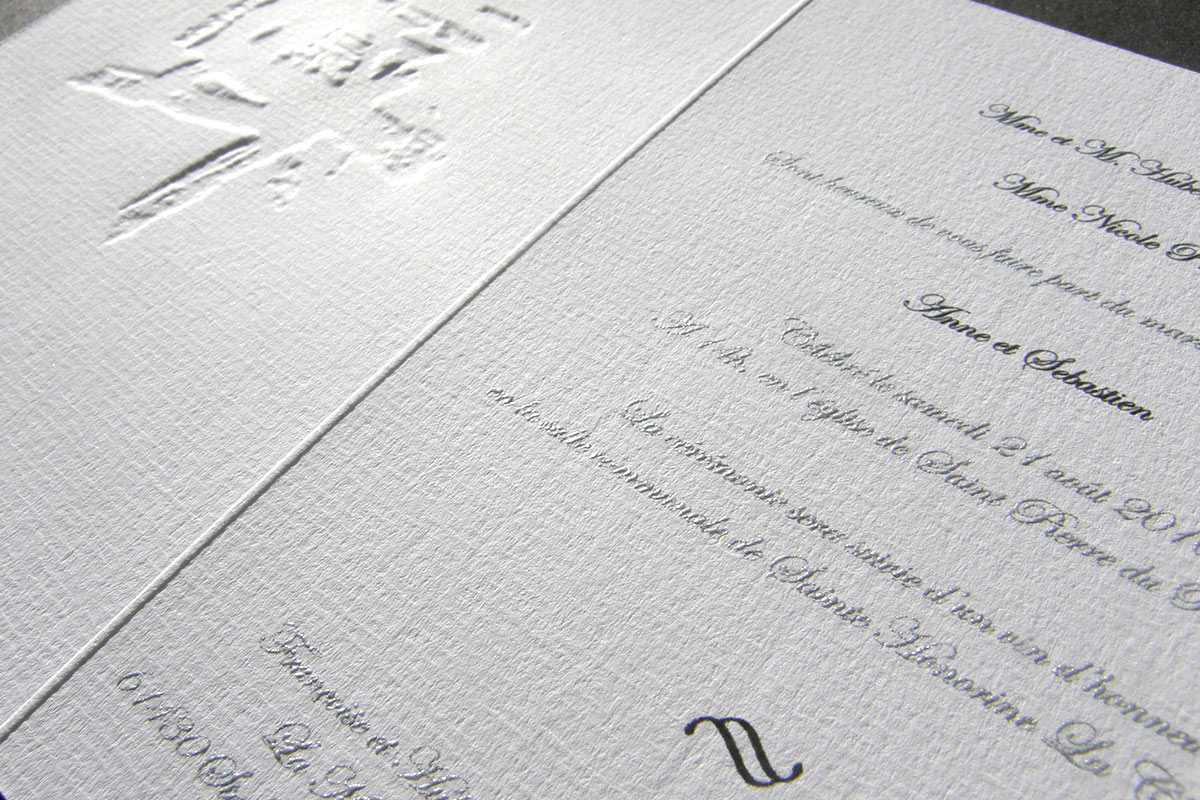 Mme et M. Hube
Mme Nicole P
Sont heureux de vous faire part du mara
Anne et Sebastien
Célébré le samedi 21 août 201
A 14h, en l'église de Saint Pierre du
La cérémonie sera suivie d'un vin d'honneu
en la salle communale de Sainte Honorine La C
Françoise et Hu
La
61430 S